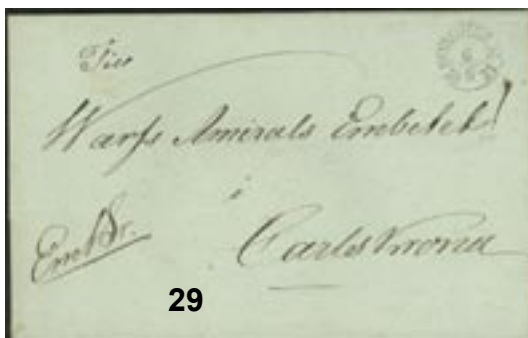 Till
Warfs Amirals Embetet
i
Carlskrona
EmbBr.
29